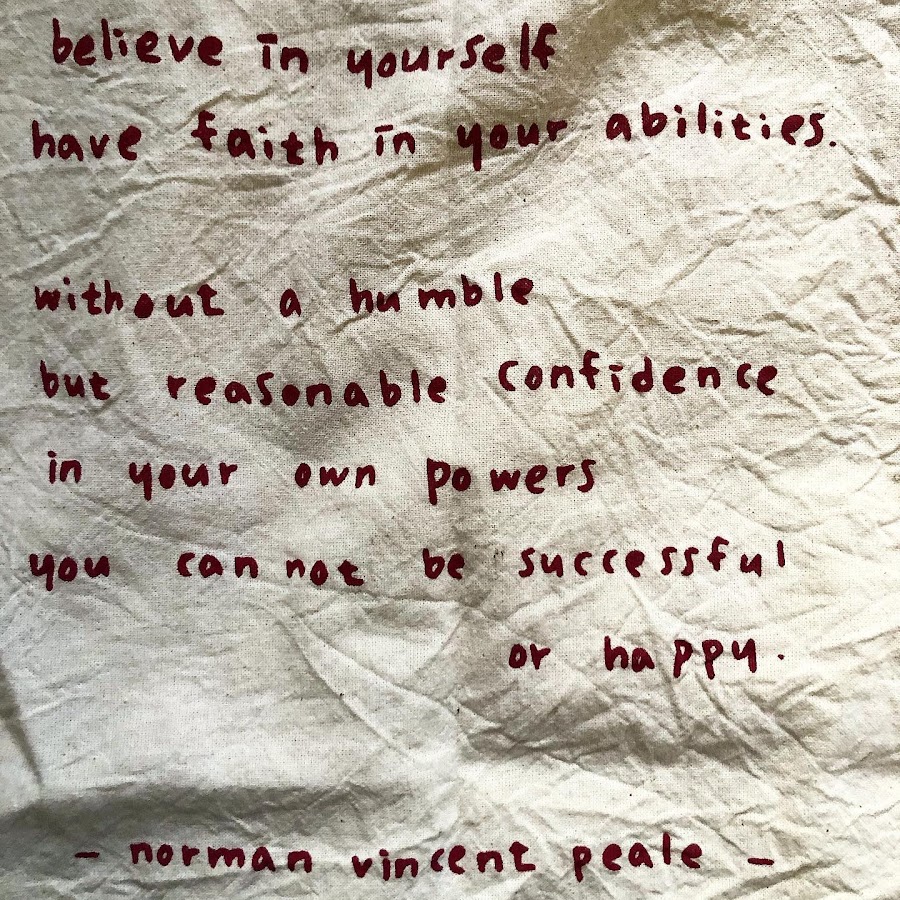 believe in yourself
have faith in your abilities.
without a humble
but reasonable confidence
in your own powers
you can not be successful
or happy.
- norman vincent peale -